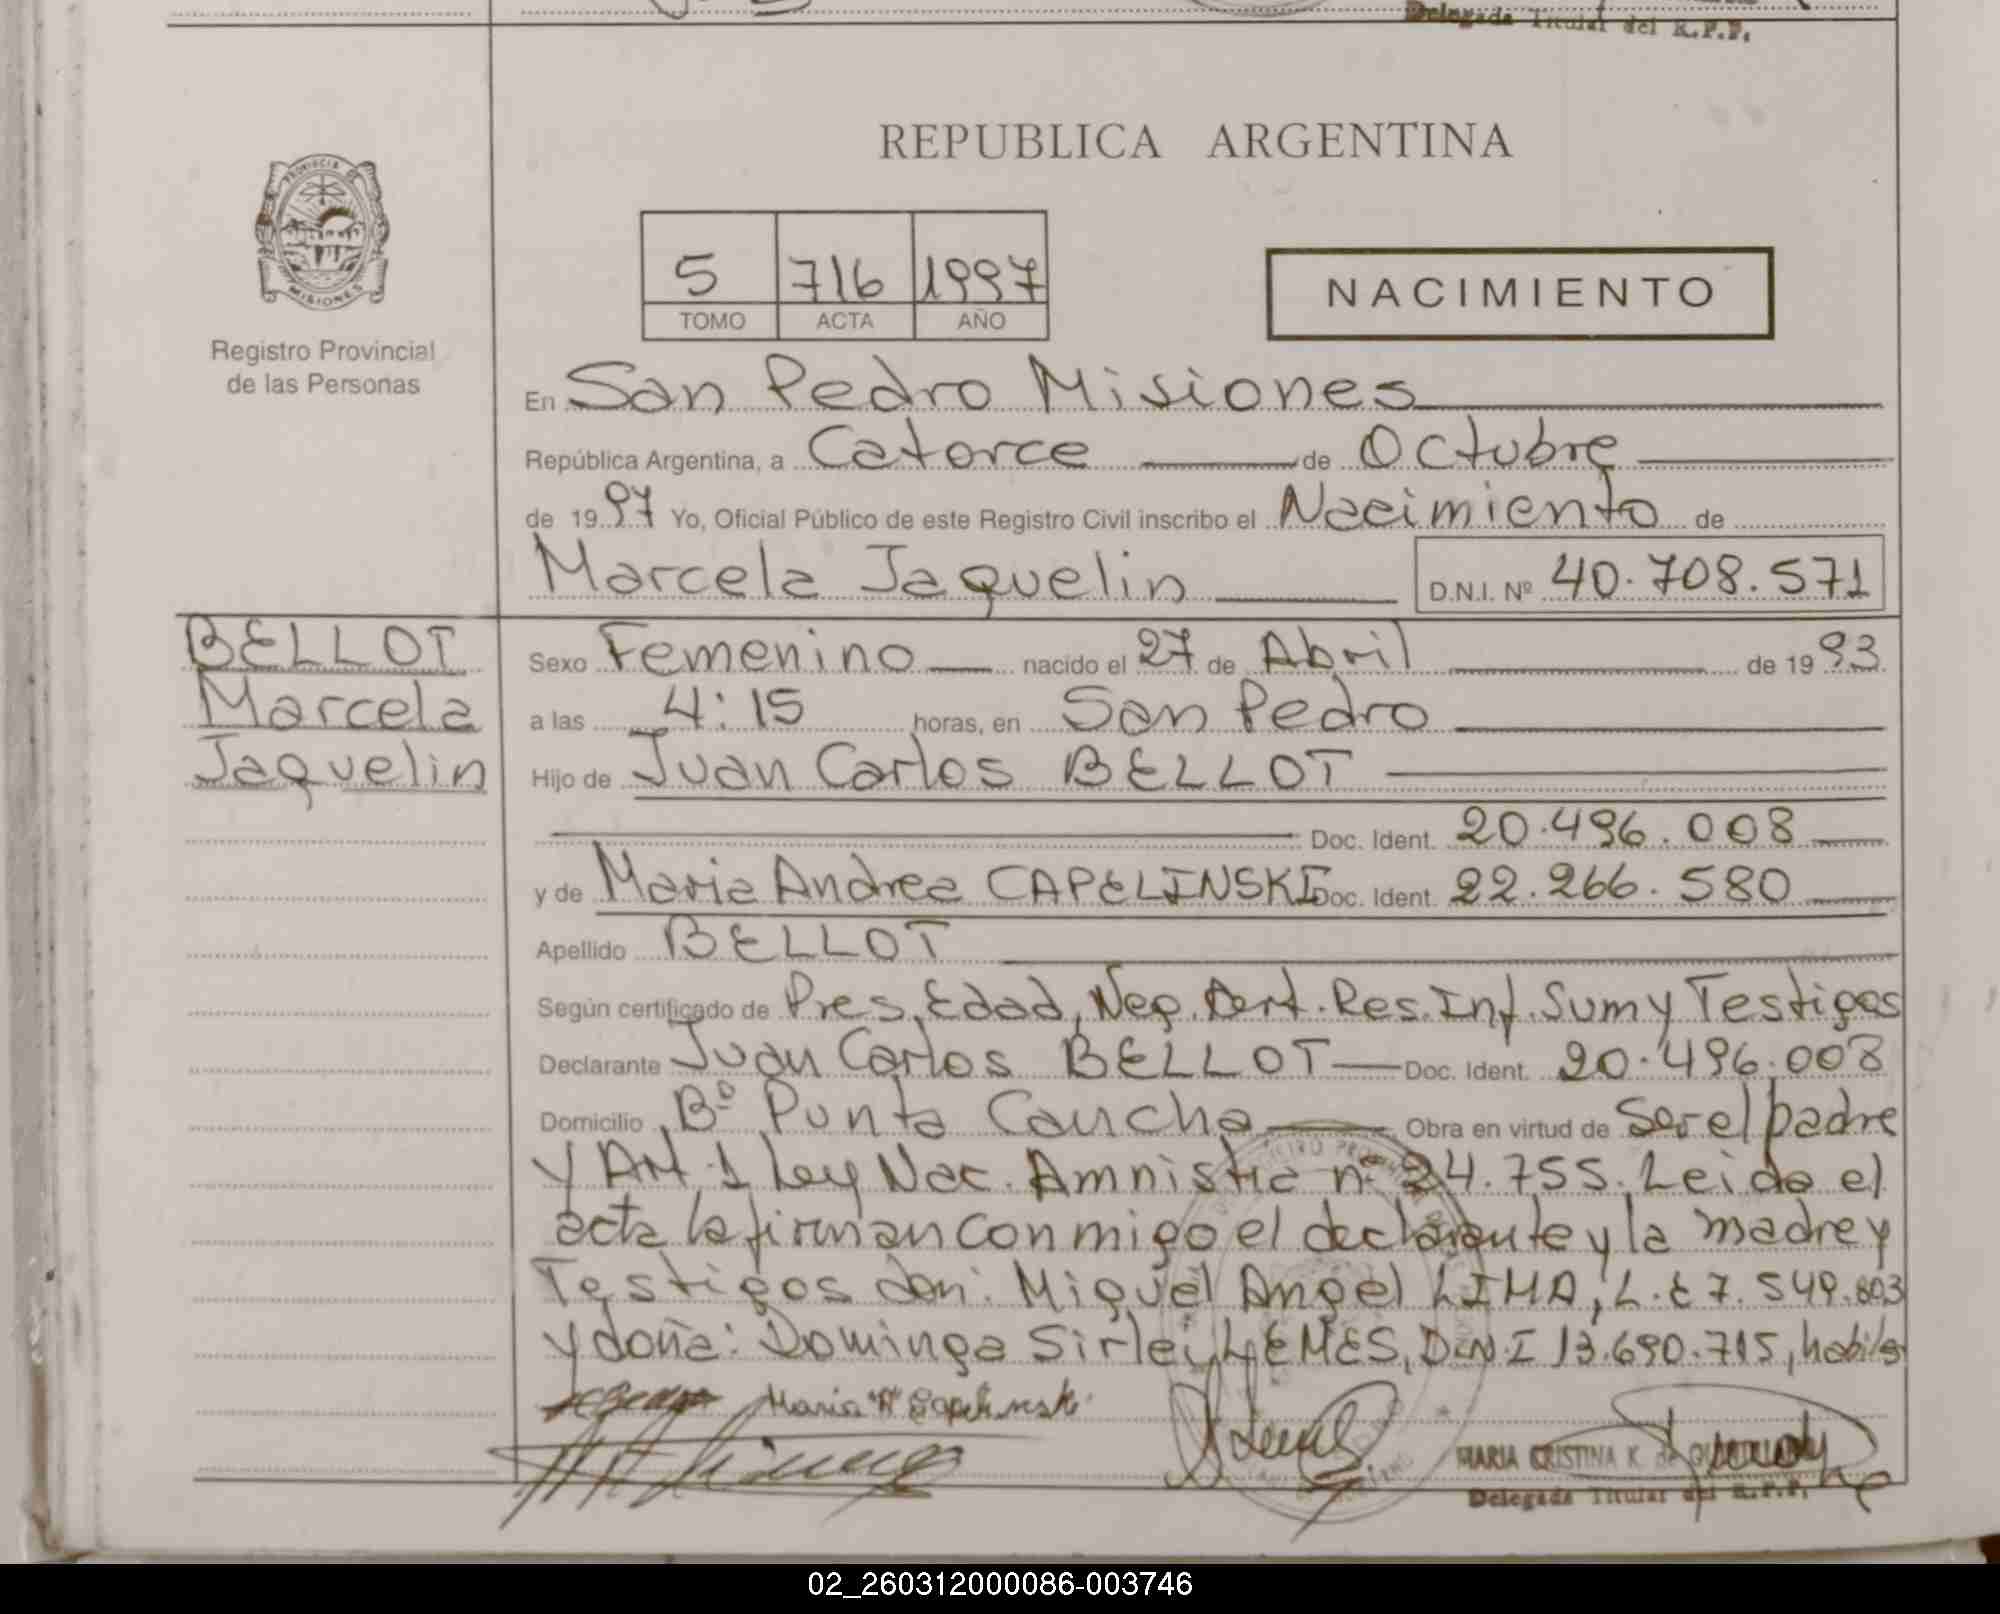 Delegada Titular del R.P.P.
REPUBLICA ARGENTINA
PROVINCIA DE
MISIONES
Registro Provincial
de las Personas
5 716 1997
TOMO ACTA AÑO
NACIMIENTO
En San Pedro Misiones
República Argentina, a Catorce de Octubre
de 1997 Yo, Oficial Público de este Registro Civil inscribo el Nacimiento de
Marcela Jaquelin D.N.I. Nº 40.708.571
BELLOT
Marcela
Jaquelin
Sexo Femenino nacido el 27 de Abril de 1993
a las 4:15 horas, en San Pedro
Hijo de Juan Carlos BELLOT
Doc. Ident. 20.496.008
y de Maria Andrea CAPELINSKI Doc. Ident. 22.266.580
Apellido BELLOT
Según certificado de Pres. Edad, Neg. Cert. Res. Inf. Sum y Testigos
Declarante Juan Carlos BELLOT Doc. Ident. 20.496.008
Domicilio Bº Punta Cancha Obra en virtud de Ser el padre
y Art. 1 Ley Nac. Amnistia nº 24.755. Leida el
acta la firman conmigo el declarante y la madre y
Testigos don: Miguel Angel LIMA, L.E 7.549.803
y doña: Dominga Sirley LEMES, D.N.I 13.690.715, habiles
Maria "A" Capelinski
MARIA CRISTINA K. de
Delegada Titular del R.P.P.
02_260312000086-003746